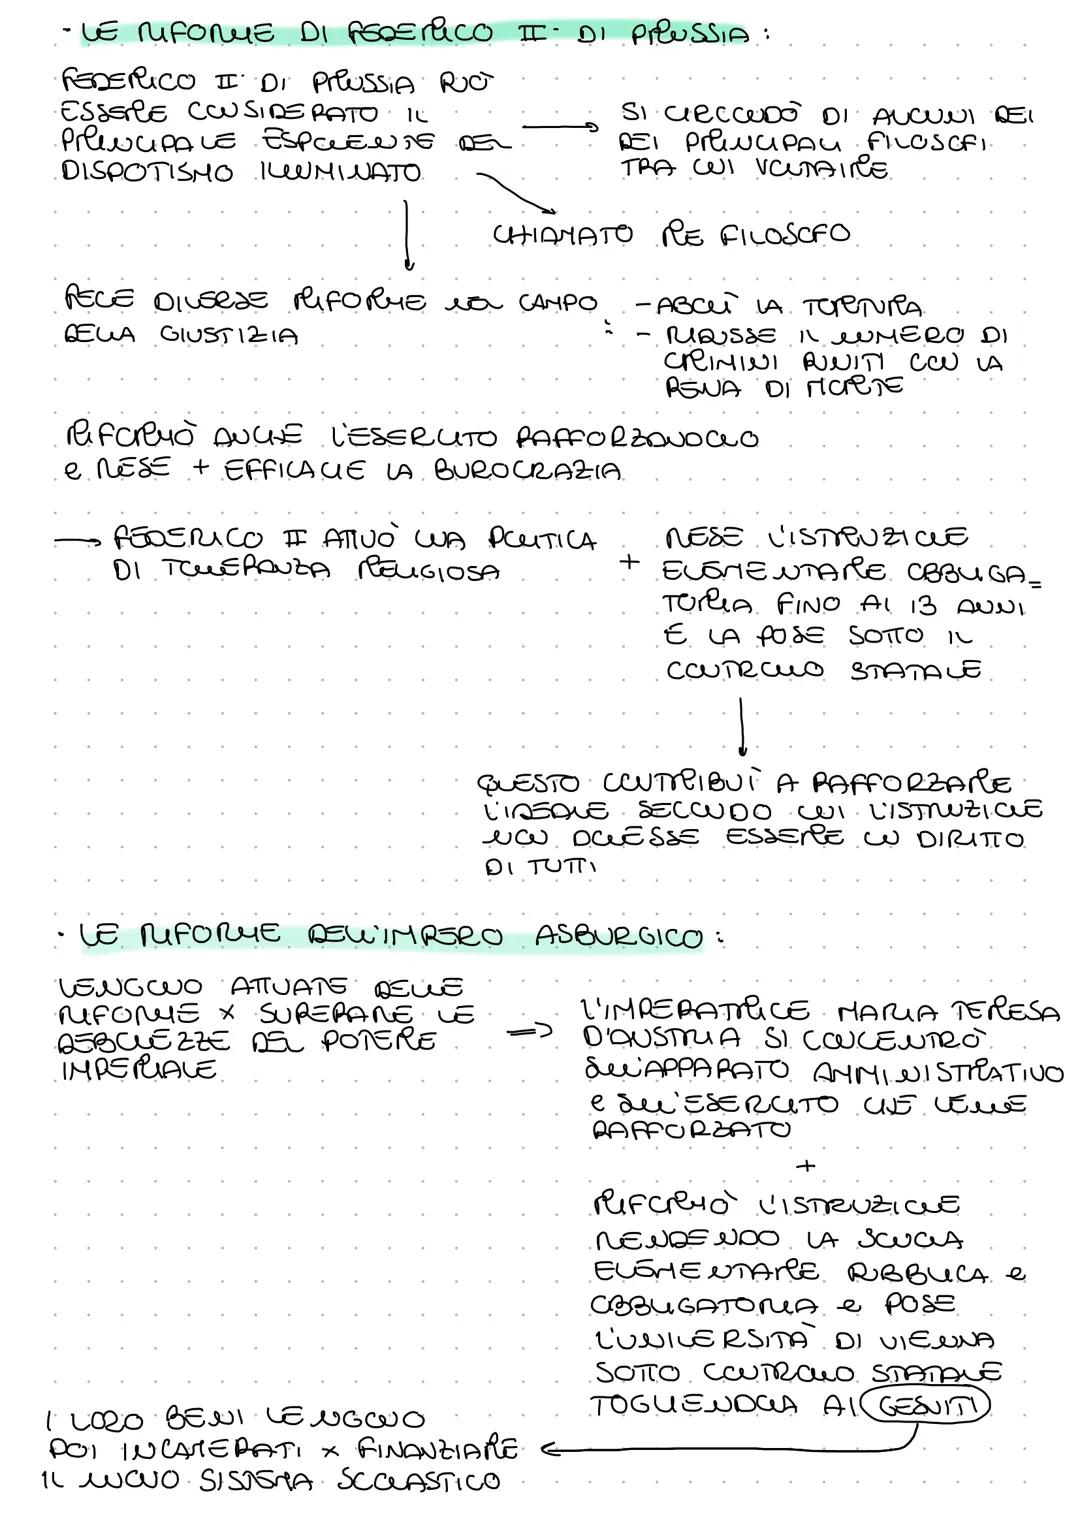 - LE RIFORME DI FEDERICO II DI PRUSSIA :
FEDERICO II DI PRUSSIA PUÒ
ESSERE CONSIDERATO IL
PRINCIPALE ESPONENTE DEL
DISPOTISMO ILLUMINATO
→ SI CIRCONDÒ DI ALCUNI DEI
DEI PRINCIPALI FILOSOFI
TRA CUI VOLTAIRE
CHIAMATO RE FILOSOFO
FECE DIVERSE RIFORME NEL CAMPO
DELLA GIUSTIZIA :
- ABOLÌ LA TORTURA
- RIDUSSE IL NUMERO DI
CRIMINI PUNITI CON LA
PENA DI MORTE
RIFORMÒ ANCHE L'ESERCITO RAFFORZANDOLO
e RESE + EFFICACIE LA BUROCRAZIA
→ FEDERICO II ATTUÒ UNA POLITICA
DI TOLLERANZA RELIGIOSA
+ RESE L'ISTRUZIONE
ELEMENTARE OBBLIGA=
TORIA FINO AI 13 ANNI
E LA POSE SOTTO IL
CONTROLLO STATALE
QUESTO CONTRIBUÌ A RAFFORZARE
L'IDEALE SECONDO CUI L'ISTRUZIONE
NON DOVESSE ESSERE UN DIRITTO
DI TUTTI
· LE RIFORME DELL'IMPERO ASBURGICO :
VENGONO ATTUATE DELLE
RIFORME x SUPERARE LE
DEBOLEZZE DEL POTERE
IMPERIALE
=> L'IMPERATRICE MARIA TERESA
D'AUSTRIA SI CONCENTRÒ
sull'APPARATO AMMINISTRATIVO
e sull'ESERCITO CHE VENNE
RAFFORZATO
+
RIFORMÒ L'ISTRUZIONE
RENDENDO LA SCUOLA
ELEMENTARE PUBBLICA e
OBBLIGATORIA e POSE
L'UNIVERSITÀ DI VIENNA
SOTTO CONTROLLO STATALE
TOGLIENDOLA AI GESUITI
I LORO BENI VENGONO
POI INCAMERATI x FINANZIARE
IL NUOVO SISTEMA SCOLASTICO